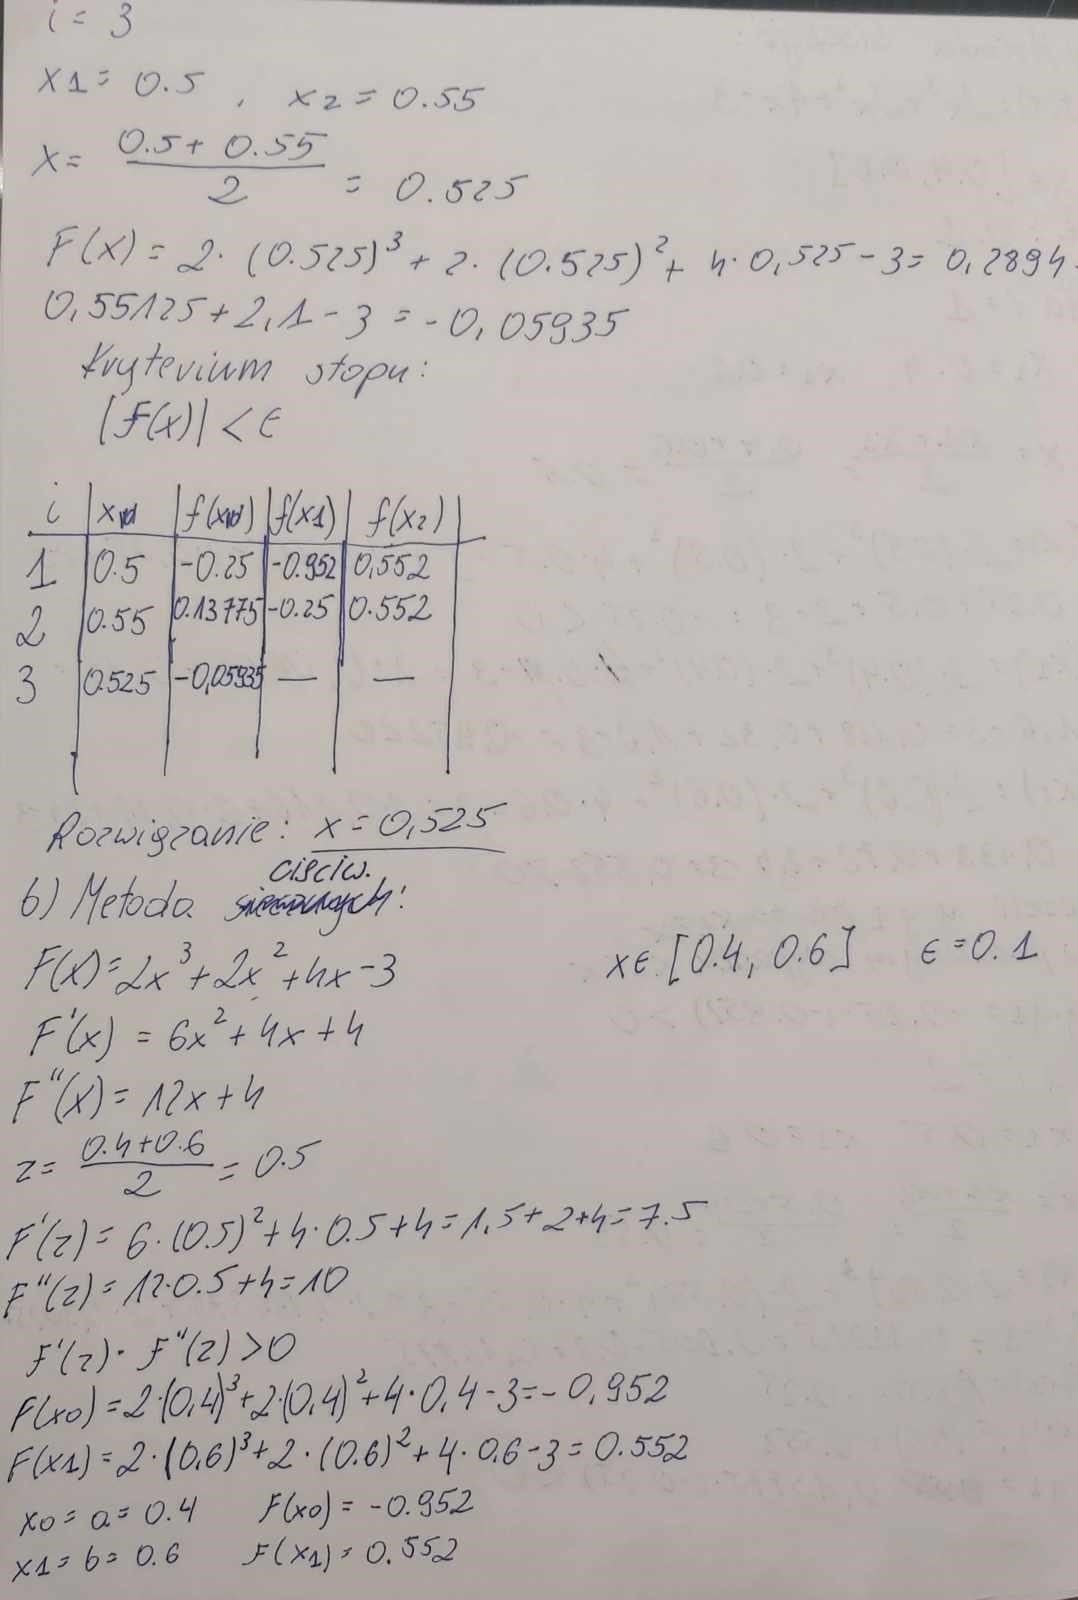 i = 3
x1 = 0.5 , x2 = 0.55
x = (0.5 + 0.55)/2 = 0.525
F(x) = 2·(0.525)³ + 2·(0.525)² + 4·0,525 - 3 = 0,2894 +
0,55125 + 2,1 - 3 = -0,05935
Kryterium stopu:
|F(x)| < ϵ
i | x | f(x) | f(x1) | f(x2) |
1 | 0.5 | -0.25 | -0.952 | 0,552
2 | 0.55 | 0.13775 | -0.25 | 0.552
3 | 0.525 | -0,05935 | — | —
Rozwiązanie: x = 0,525
b) Metoda cisciw. :
F(x) = 2x³ + 2x² + 4x - 3 x ϵ [0.4, 0.6] ϵ = 0.1
F'(x) = 6x² + 4x + 4
F"(x) = 12x + 4
z = (0.4+0.6)/2 = 0.5
F'(z) = 6·(0.5)² + 4·0.5 + 4 = 1,5 + 2 + 4 = 7.5
F"(z) = 12·0.5 + 4 = 10
F'(z) · F"(z) > 0
F(x0) = 2·(0,4)³ + 2·(0,4)² + 4·0,4 - 3 = -0,952
F(x1) = 2·(0,6)³ + 2·(0.6)² + 4·0.6 - 3 = 0.552
x0 = a = 0.4 F(x0) = -0.952
x1 = b = 0.6 F(x1) = 0.552